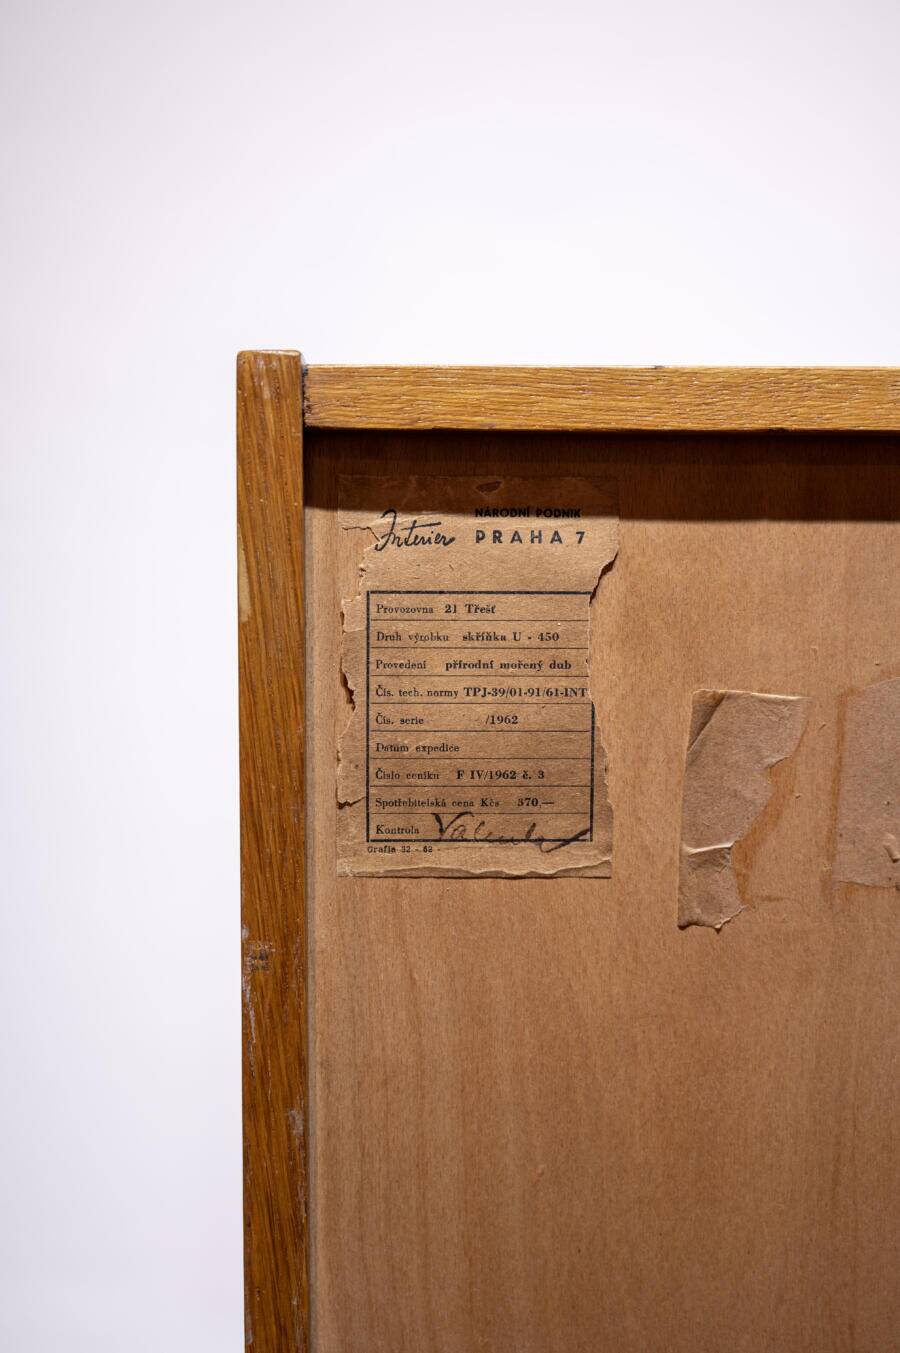 Interier
NÁRODNÍ PODNIK
PRAHA 7
Provozovna 21 Třešť
Druh výrobku skříňka U - 450
Provedení přírodní mořený dub
Čís. tech. normy TPJ-39/01-91/61-INT
Čís. serie /1962
Datum expedice
Číslo ceníku F IV/1962 č. 3
Spotřebitelská cena Kčs 370,—
Kontrola
Grafia 32 - 62 -